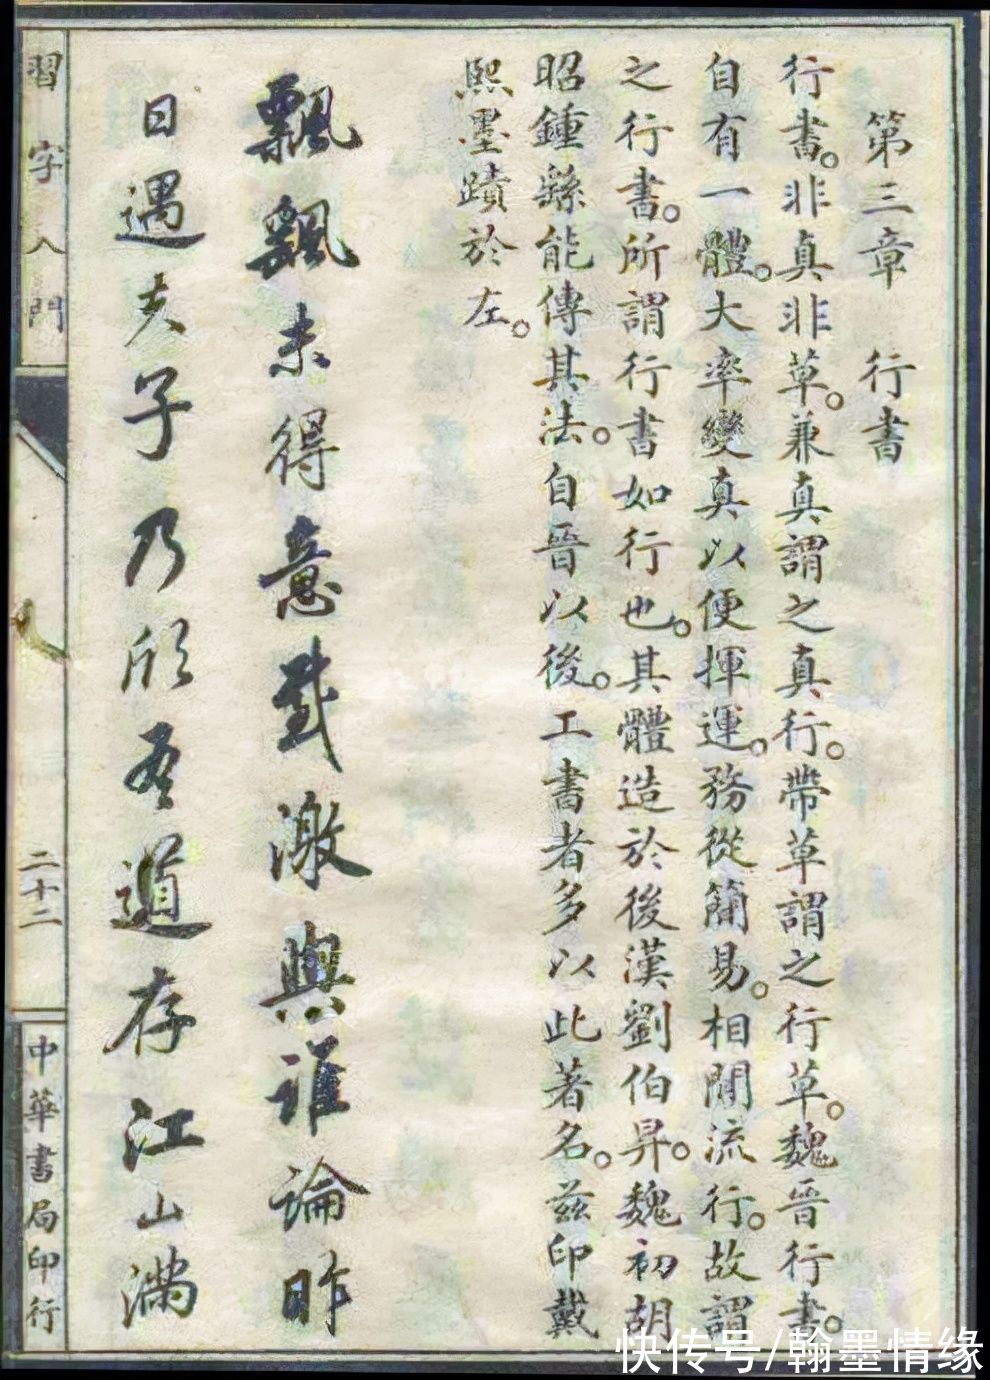 第三章　行書
行書。非真非草。兼真謂之真行。帶草謂之行草。魏晉行書。
自有一體。大率變真以便揮運。務從簡易。相間流行。故謂
之行書。所謂行書如行也。其體造於後漢劉伯昇。魏初胡
昭鍾繇能傳其法。自晉以後。工書者多以此著名。茲印戴
熙墨蹟於左。
飄飄未得意感激與誰論昨
日遇夫子乃欣吾道存江山滿
習字入門
二十二
中華書局印行
快传号/翰墨情缘